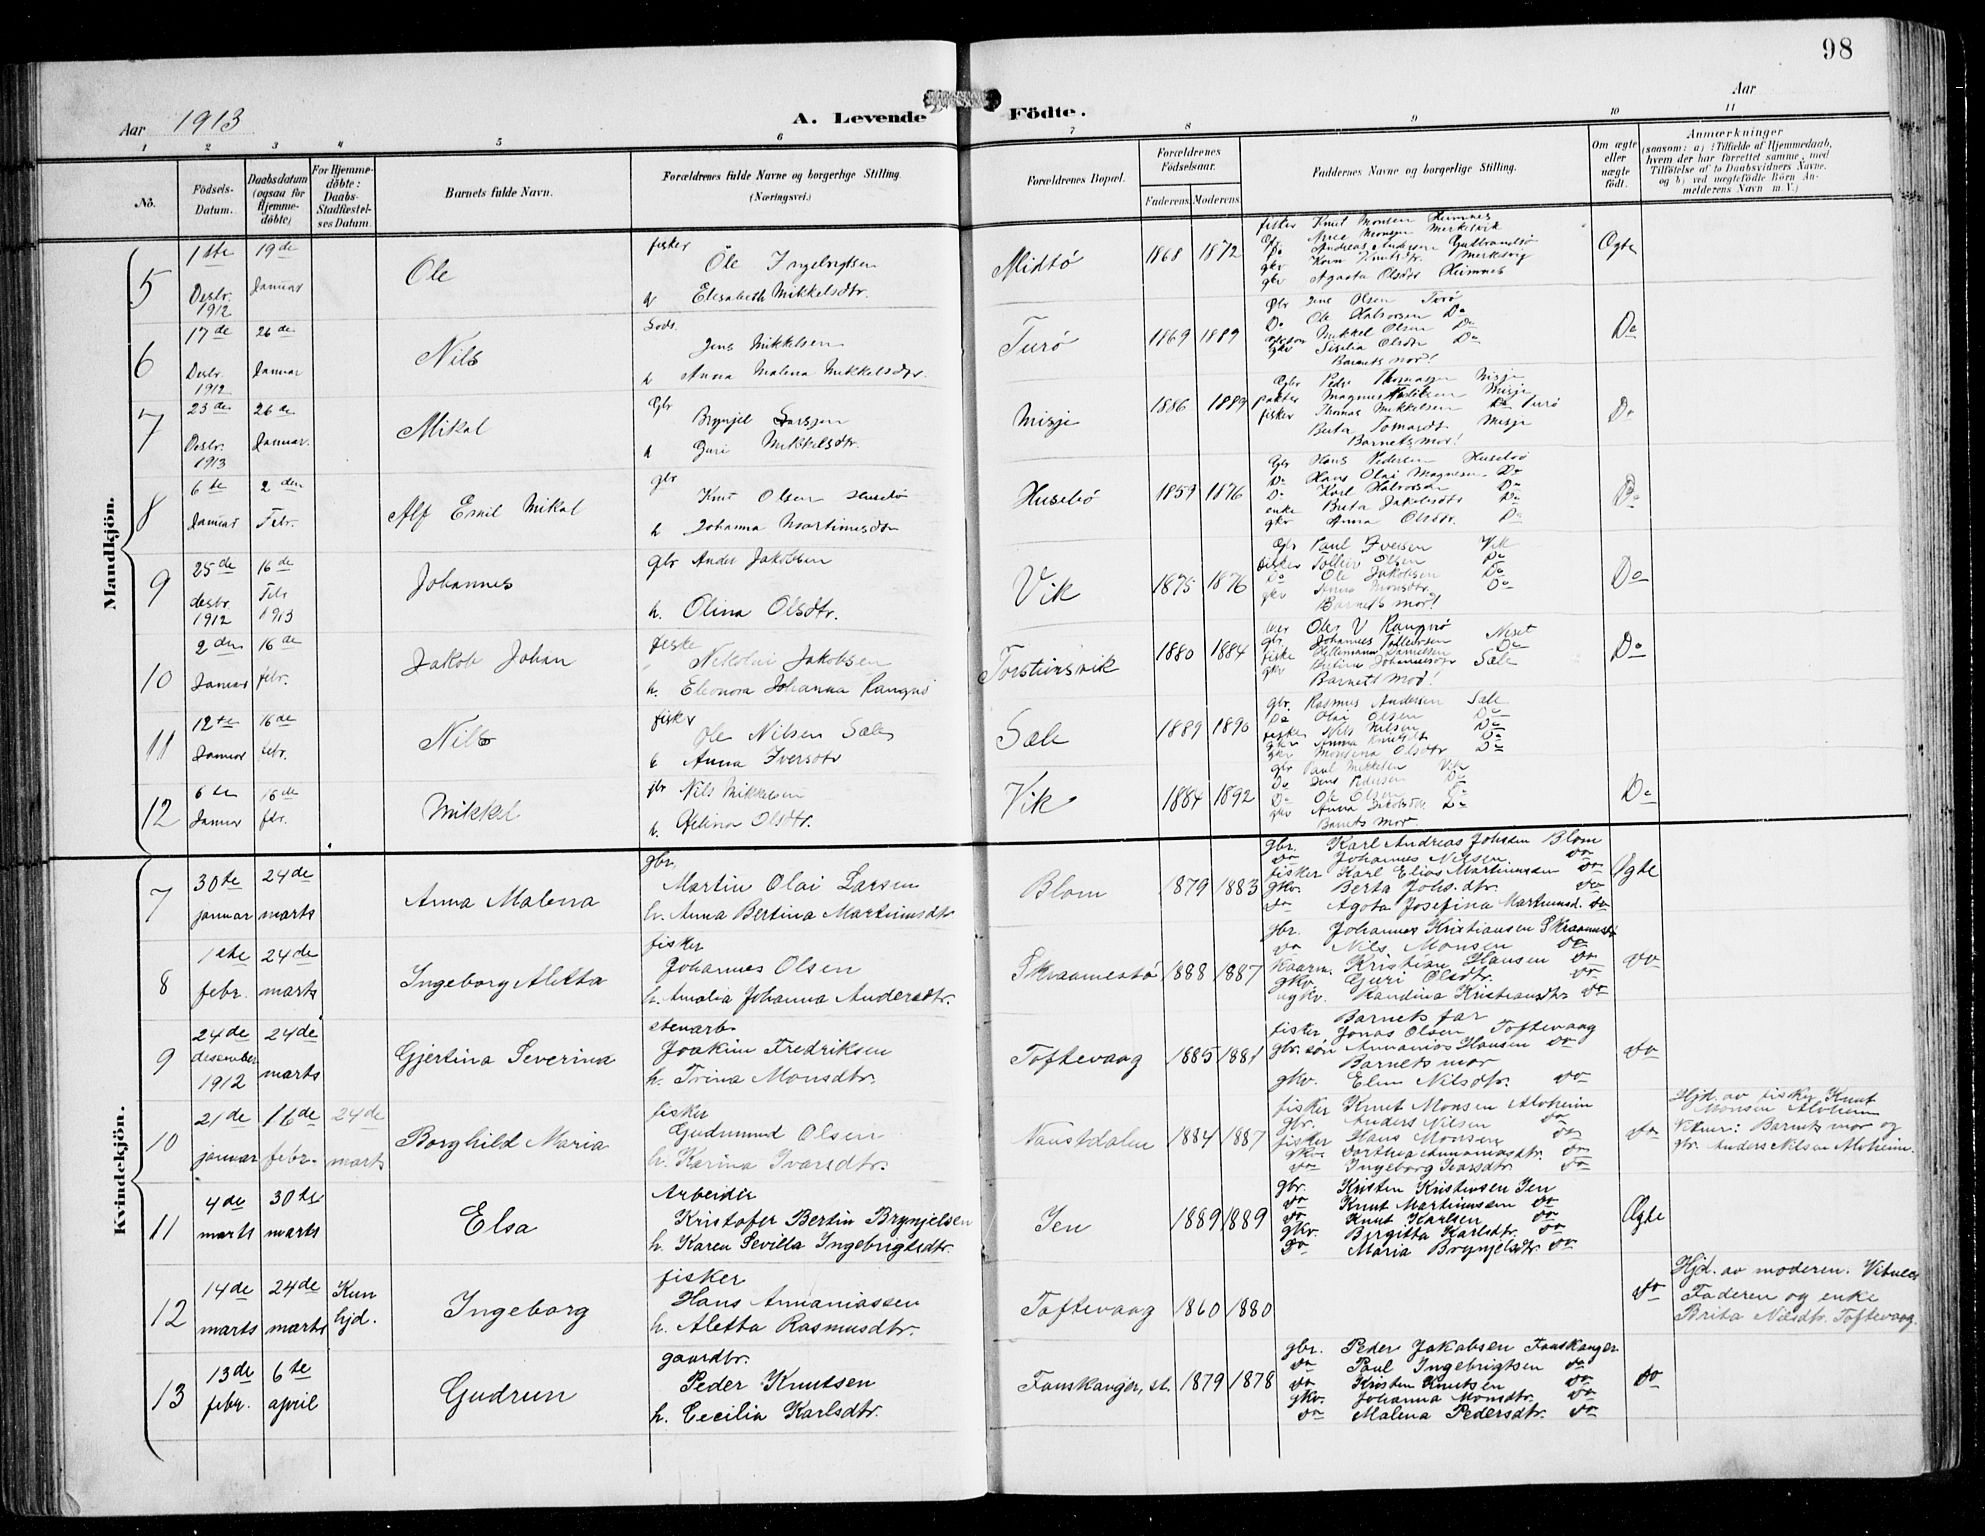 98
Aar 1913
A. Levende Födte.
Aar
1 2 3 4 5 6 7 8 9 10 11
No.
Födsels-Datum.
Daabsdatum (ogsaa for Hjemme-döbte)
For Hjemme-döbte: Daabs-Stadfæstel-ses Datum.
Barnets fulde Navn.
Forældrenes fulde Navne og borgerlige Stilling. (Næringsvei.)
Forældrenes Bopæl.
Forældrenes Födselsaar.
Faderens. Moderens.
Faddernes Navne og borgerlige Stilling.
Om ægte eller uægte födt.
Anmærkninger
(saasom: a) i Tilfælde af Hjemmedaab, hvem der har forrettet samme, med Tilföielse af to Daabsvidners Navne, og b) ved uægtefödte Börn An-melderens Navn m. V.)
Mandkjön.
5 1ste Desbr. 1912 19de Januar Ole
fisker Ole Ingebrigtsen
h Elisabeth Mikkelsdtr.
Midtö 1868 1872
fisker Knut Monsen Heimnes
gkv Agaata Olsdtr Heimnes
Ægte
6 17de Desbr. 1912 26de Januar Nils
Jens Mikkelsen
h Anna Malena Mikkelsdtr.
Turö 1869 1889
Gbr Jens Olsen Turö
Do Ole Halvorsen Do
Mikkel Olsen Do
gkv Siselia Olsdtr Do
Barnets mor!
Do
7 23de Desbr. 1913 26de Januar. Mikal
Gbr Brynjel Larssen
h Guri Mikkelsdtr.
Misje 1886 1889
Gbr Peder Thomassen Misje
fisker Thomas Mikkelsen Do Turö
Barnets mor!
Do
8 6te Januar 2den Febr. Alf Emil Mikal
gbr Knut Olsen Husebö
h Johanna Martinusdtr
Husebö 1859 1876
Gbr Hans Pedersen Husebö
Do Hans Olai Magnesen Do
Do Karl Halvorsen Do
enke Berta Jakobsdtr Do
gkv Anna Olsdtr. Do
Do
9 25de desbr. 1912 16de Febr 1913 Johannes
gbr Anders Jakobsen
h. Olina Olsdtr.
Vik 1875 1876
Gbr Paul Iversen Vik
fisker Tolleiv Olsen Do
Do Ole Jakobsen Do
gkv Anna Monsdtr. Do
Barnets mor!
Do
10 2den Januar 16de febr. Jakob Johan
fisker Nikolai Jakobsen
h. Eleonora Johanna Rangnö
Torsteinsvik 1880 1884
gbr Johannes Tolleivsen Neset
Barnets mor!
Do
11 12te Januar 16de febr. Nils
fisker Ole Nilsen Sæle
h Anna Iversdtr
Sæle 1889 1890
gbr. Rasmus Andersen Sæle
Do Olai Olsen Do
fisker Nils Nilsen Do
gkv Anna Knutsdtr Do
gkv Monsina Olsdtr Do
12 6te Januar 16de febr. Mikkel
gbr Nils Mikkelsen
h. Helina Olsdtr.
Vik 1884 1892
gbr Paul Mikkelsen Vik
Do Jens Pedersen Do
Do Ole Olsen Do
gkv Anna Jakobsdtr Do
Barnets mor.
Do
Kvindekjön.
7 30te januar 24de marts Anna Malena
gbr. Martin Olai Larsen
h. Anna Bertina Martinusdtr
Blom 1879 1883
gbr. Karl Andreas Johsen Blom
do Johannes Nilsen. do
fisker Karl Elias Martinussen do
gkv. Berta Johs.dtr. do
do Agota Josefina Martinusd. do
Ægte
8 1ste febr. 24de marts Ingeborg Aletta
fisker Johannes Olsen
h. Amalia Johanna Andersdtr.
Skraamestö 1888 1887
gbr. Johannes Kristiansen Skraamestö
do Nils Monsen do
Kaarm. Kristian Hansen do
gkv. Guri Olsdtr. do
ugkv. Randina Kristiansdtr do
do
9 24de desember 1912 24de marts Gjertina Severina
stenarb. Joakim Fredriksen
h. Trina Monsdtr.
Toftevaag 1885 1881
Barnets far
fisker Jonas Olsen Toftevaag
gbr. sön Annanias Hansen do
Barnets mor
gkv. Elen Nilsdtr. do
do
10 21de januar 16de febr. 24de marts Borghild Maria
fisker Gudmund Olsen
h. Karina Ivarsdtr.
Naustdalen 1884 1887
fisker Knut Monsen Alvheim
gbr. Anders Nilsen do
fisker Hans Monsen do
gkv. Dorthea Annaniasdtr. do
do Ingeborg Ivarsdtr. do
do
Hjd. av fisker Knut Monsen Alvheim
Vitner: Barnets mor og
gbr. Anders Nilsen Alvheim.
11 4de marts 30te marts Elsa
Arbeider Kristofer Bertin Brynjelsen
h. Karen Sevilla Ingebrigtsdtr.
Jen 1889 1889
gbr. Kristen Kristensen Jen
do Knut Martinussen do
do Knut Karlsen do
gkv. Birgitta Karlsdtr. do
do Maria Brynjelsdtr do
Ægte
12 14de marts 24de marts Kun hjd. Ingeborg
fisker Hans Annaniassen
h. Aletta Rasmusdtr.
Toftevaag 1860 1880
do
Hjd. av moderen. Vitner
Faderen og enke
Brita Nilsdtr. Toftevaag.
13 13de febr. 6te april Gudrun
gaardbr. Peder Knutsen
h. Cecilia Karlsdtr.
Fonskanger, st. 1879 1878
gbr. Peder Jakobsen Fonskanger
do Paul Ingebrigtsen do
do Kristen Knutsen do
gkv. Johanna Monsdtr. do
do Malena Pedersdtr. do
do